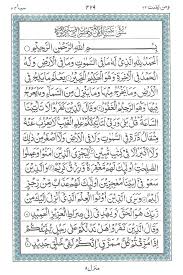 ومن يقنت ٢٢
بِسْمِ اللهِ الرَّحْمٰنِ الرَّحِيْمِ
اَلْحَمْدُ لِلّٰهِ الَّذِيْ لَهٗ مَا فِي السَّمٰوٰتِ وَمَا فِي الْاَرْضِ وَلَهُ
الْحَمْدُ فِي الْاٰخِرَةِ ۚ وَهُوَ الْحَكِيْمُ الْخَبِيْرُ ۝ يَعْلَمُ مَا يَلِجُ فِي
الْاَرْضِ وَمَا يَخْرُجُ مِنْهَا وَمَا يَنْزِلُ مِنَ السَّمَآءِ وَمَا يَعْرُجُ
فِيْهَا ۚ وَهُوَ الرَّحِيْمُ الْغَفُوْرُ ۝ وَقَالَ الَّذِيْنَ كَفَرُوْا لَا تَاْتِيْنَا
السَّاعَةُ ۚ قُلْ بَلٰى وَرَبِّيْ لَتَاْتِيَنَّكُمْ ۙ عٰلِمِ الْغَيْبِ ۚ لَا يَعْزُبُ عَنْهُ
مِثْقَالُ ذَرَّةٍ فِي السَّمٰوٰتِ وَلَا فِي الْاَرْضِ وَلَآ اَصْغَرُ مِنْ
ذٰلِكَ وَلَآ اَكْبَرُ اِلَّا فِيْ كِتٰبٍ مُّبِيْنٍ ۝ لِّيَجْزِيَ الَّذِيْنَ اٰمَنُوْا
وَعَمِلُوا الصّٰلِحٰتِ ۚ اُولٰٓئِكَ لَهُمْ مَّغْفِرَةٌ وَّرِزْقٌ كَرِيْمٌ ۝ وَالَّذِيْنَ
سَعَوْ فِيْٓ اٰيٰتِنَا مُعٰجِزِيْنَ اُولٰٓئِكَ لَهُمْ عَذَابٌ مِّنْ رِّجْزٍ
اَلِيْمٌ ۝ وَيَرَى الَّذِيْنَ اُوْتُوا الْعِلْمَ الَّذِيْٓ اُنْزِلَ اِلَيْكَ مِنْ
رَّبِّكَ هُوَ الْحَقَّ ۙ وَيَهْدِيْٓ اِلٰى صِرَاطِ الْعَزِيْزِ الْحَمِيْدِ ۝ وَقَالَ
الَّذِيْنَ كَفَرُوْا هَلْ نَدُلُّكُمْ عَلٰى رَجُلٍ يُّنَبِّئُكُمْ اِذَا
مُزِّقْتُمْ كُلَّ مُمَزَّقٍ ۙ اِنَّكُمْ لَفِيْ خَلْقٍ جَدِيْدٍ ۝
منزل ٥